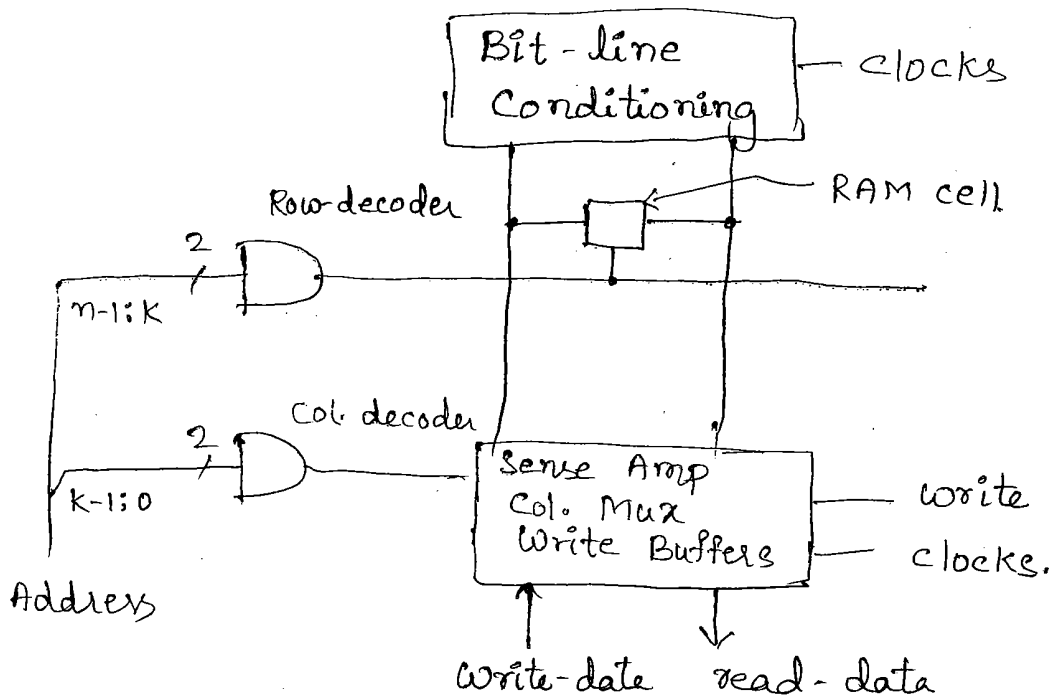 Bit-line
Conditioning
clocks
RAM cell
Row-decoder
2
n-1:K
Col. decoder
2
K-1:0
Sense Amp
Col. Mux
Write Buffers
write
clocks.
Address
write-date
read-data